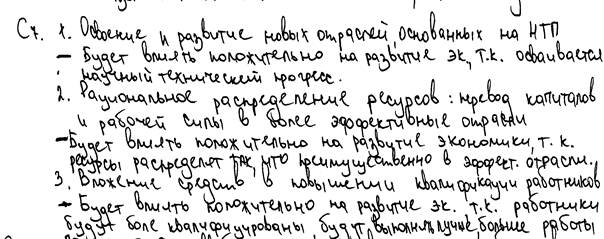 С7. 1. Освоение и развитие новых отраслей, основанных на НТП
– Будет влиять положительно на развитие эк, т.к. осваивается
научный технический прогресс.
2. Рациональное распределение ресурсов: перевод капиталов
и рабочей силы в более эффективные отрасли
– Будет влиять положительно на развитие экономики, т. к.
ресурсы распределят так, что преимущественно в эффект. отрасли.
3. Вложение средств в повышении квалификации работников
– Будет влиять положительно на развитие эк. т.к. работники
будут боле квалифицированы будут выполнять лучше, больше работы